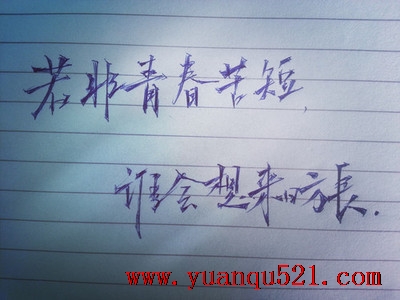 若非青春苦短,
谁会想来日方長.
www.yuanqu521.com